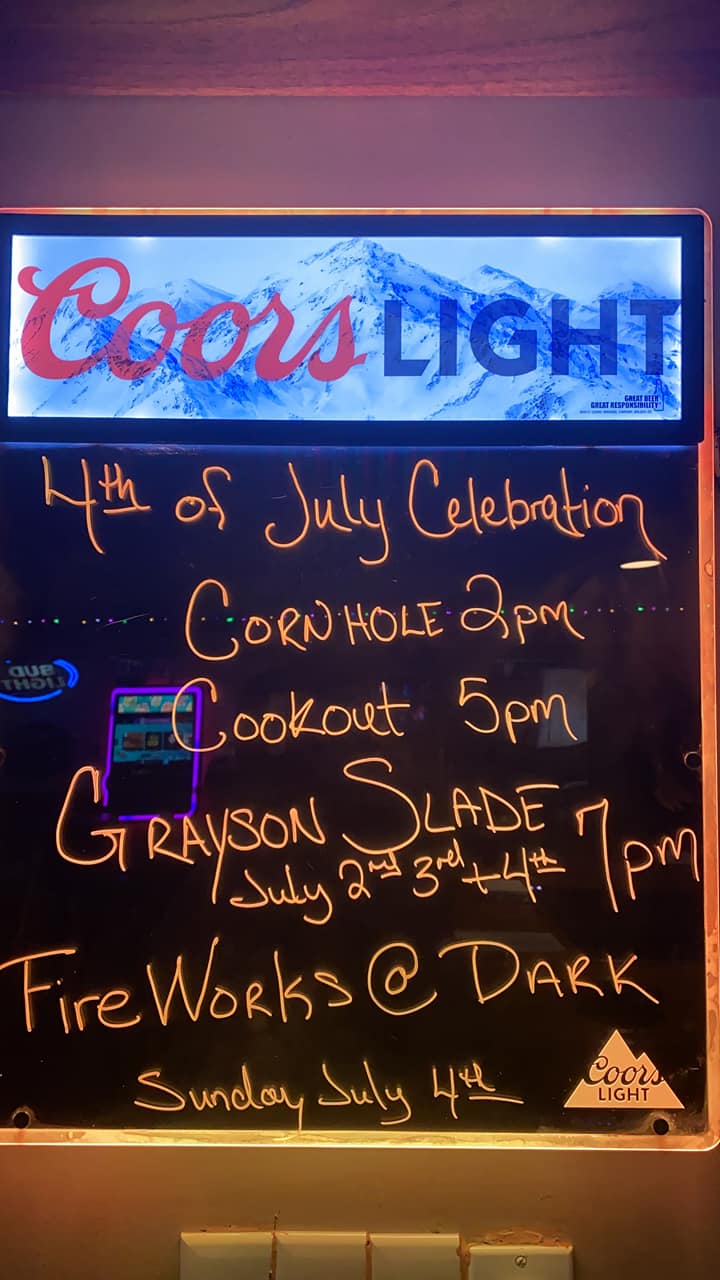 Coors LIGHT
GREAT BEER
GREAT RESPONSIBILITY
4th of July Celebration
CORNHOLE 2pm
Cookout 5pm
GRAYSON SLADE 7pm
July 2nd 3rd + 4th
FireWorks @ DARK
Sunday July 4th
Coors
LIGHT
BUD
LIGHT